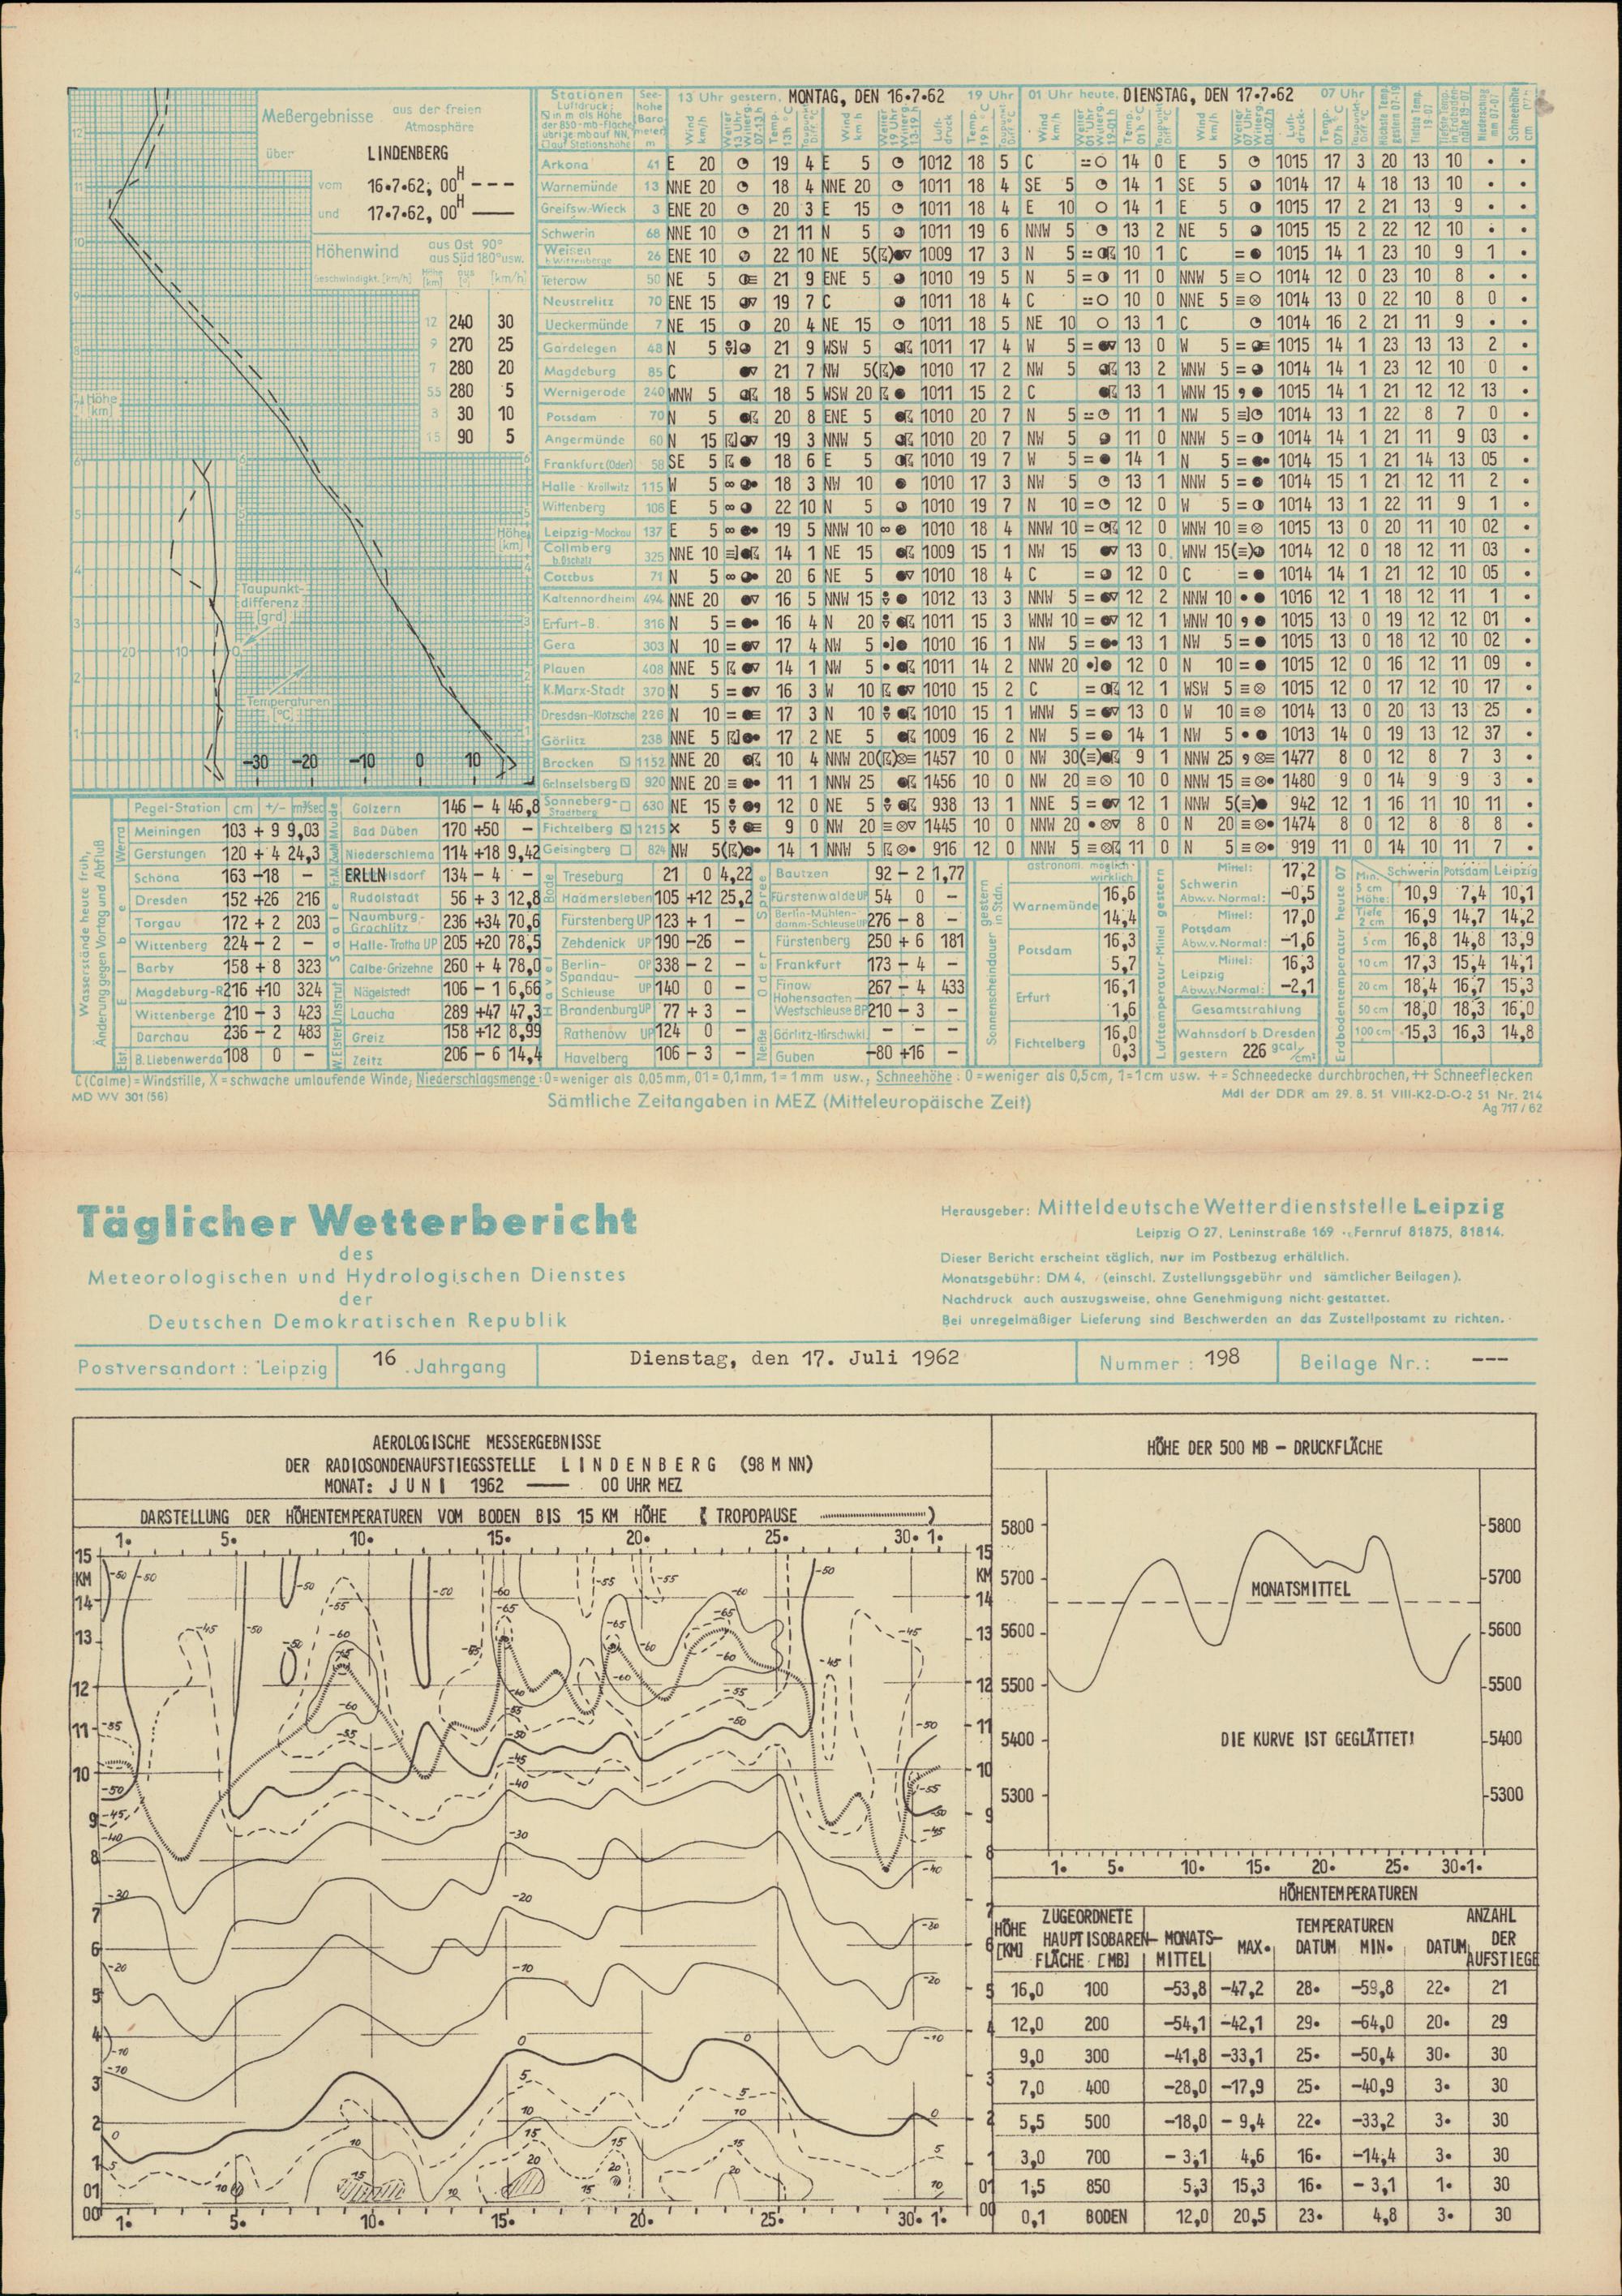 Meßergebnisse aus der freien
Atmosphäre
über LINDENBERG
vom 16.7.62, 00H ---
und 17.7.62, 00H ——
Höhenwind aus Ost 90°
aus Süd 180° usw.
Geschwindigkt. [km/h] Höhe [km] aus [°] [km/h]
12 240 30
9 270 25
7 280 20
5,5 280 5
3 30 10
1,5 90 5
Höhe [km]
Höhe [km]
Taupunkt-
differenz
[grd]
20 10 0
Temperaturen
[°C]
-30 -20 -10 0 10
Stationen
Luftdruck:
in m als Höhe
der 850-mb-Fläche
übrige mb auf NN,
auf Stationshöhe
See-
höhe
Baro-
meter
m
13 Uhr gestern, MONTAG, DEN 16.7.62 19 Uhr 01 Uhr heute, DIENSTAG, DEN 17.7.62 07 Uhr
Arkona 41 E 20 19 4 E 5 1012 18 5 C 14 0 E 5 1015 17 3 20 13 10 • •
Warnemünde 13 NNE 20 18 4 NNE 20 1011 18 4 SE 5 14 1 SE 5 1014 17 4 18 13 10 • •
Greifsw.-Wieck 3 ENE 20 20 3 E 15 1011 18 4 E 10 14 1 E 5 1015 17 2 21 13 9 • •
Schwerin 68 NNE 10 21 11 N 5 1011 19 6 NNW 5 13 2 NE 5 1015 15 2 22 12 10 • •
Weisen b. Wittenberge 26 ENE 10 22 10 NE 5 1009 17 3 N 5 10 1 C 1015 14 1 23 10 9 1 •
Teterow 50 NE 5 21 9 ENE 5 1010 19 5 N 5 11 0 NNW 5 1014 12 0 23 10 8 • •
Neustrelitz 70 ENE 15 19 7 C 1011 18 4 C 10 0 NNE 5 1014 13 0 22 10 8 0 •
Ueckermünde 7 NE 15 20 4 NE 15 1011 18 5 NE 10 13 1 C 1014 16 2 21 11 9 • •
Gardelegen 48 N 5 21 9 WSW 5 1011 17 4 W 5 13 0 W 5 1015 14 1 23 13 13 2 •
Magdeburg 85 C 21 7 NW 5 1010 17 2 NW 5 13 2 WNW 5 1014 14 1 23 12 10 0 •
Wernigerode 240 WNW 5 18 5 WSW 20 1011 15 2 C 13 1 WNW 15 1015 14 1 21 12 12 13 •
Potsdam 70 N 5 20 8 ENE 5 1010 20 7 N 5 11 1 NW 5 1014 13 1 22 8 7 0 •
Angermünde 60 N 15 19 3 NNW 5 1010 20 7 NW 5 11 0 NNW 5 1014 14 1 21 11 9 03 •
Frankfurt (Oder) 58 SE 5 18 6 E 5 1010 19 7 W 5 14 1 N 5 1014 15 1 21 14 13 05 •
Halle - Kröllwitz 115 W 5 18 3 NW 10 1010 17 3 NW 5 13 1 NNW 5 1014 15 1 21 12 11 2 •
Wittenberg 106 E 5 22 10 N 5 1010 19 7 N 10 12 0 W 5 1014 13 1 22 11 9 1 •
Leipzig-Mockau 137 E 5 19 5 NNW 10 1010 18 4 NNW 10 12 0 WNW 10 1015 13 0 20 11 10 02 •
Collmberg b. Oschatz 325 NNE 10 14 1 NE 15 1009 15 1 NW 15 13 0 WNW 15 1014 12 0 18 12 11 03 •
Cottbus 71 N 5 20 6 NE 5 1010 18 4 C 12 0 C 1014 14 1 21 12 10 05 •
Kaltennordheim 494 NNE 20 16 5 NNW 15 1012 13 3 NNW 5 12 2 NNW 10 1016 12 1 18 12 11 1 •
Erfurt-B. 316 N 5 16 4 N 20 1011 15 3 WNW 10 12 1 WNW 10 1015 13 0 19 12 12 01 •
Gera 303 N 10 17 4 NW 5 1010 16 1 NW 5 13 1 NW 5 1015 13 0 18 12 10 02 •
Plauen 408 NNE 5 14 1 NW 5 1011 14 2 NNW 20 12 0 N 10 1015 12 0 16 12 11 09 •
K.Marx-Stadt 370 N 5 16 3 W 10 1010 15 2 C 12 1 WSW 5 1015 12 0 17 12 10 17 •
Dresden-Klotzsche 226 N 10 17 3 N 10 1010 15 1 WNW 5 13 0 W 10 1014 13 0 20 13 13 25 •
Görlitz 238 NNE 5 17 2 NE 5 1009 16 2 NW 5 14 1 NW 5 1013 14 0 19 13 12 37 •
Brocken 1152 NNE 20 10 4 NNW 20 1457 10 0 NW 30 9 1 NNW 25 1477 8 0 12 8 7 3 •
Gr.Inselsberg 920 NNE 20 11 1 NNW 25 1456 10 0 NW 20 10 0 NNW 15 1480 9 0 14 9 9 3 •
Sonneberg-Stadtberg 630 NE 15 12 0 NE 5 938 13 1 NNE 5 12 1 NNW 5 942 12 1 16 11 10 11 •
Fichtelberg 1215 X 5 9 0 NW 20 1445 10 0 NNW 20 8 0 N 20 1474 8 0 12 8 8 8 •
Geisingberg 824 NW 5 14 1 NNW 5 916 12 0 NNW 5 11 0 N 5 919 11 0 14 10 11 7 •
Wasserstände heute früh,
Änderung gegen Vortag und Abfluß
Pegel-Station cm +/- m³/sec
Werra
Meiningen 103 + 9 9,03
Gerstungen 120 + 4 24,3
Elbe
Schöna 163 -18 -
Dresden 152 +26 216
Torgau 172 + 2 203
Wittenberg 224 - 2 -
Barby 158 + 8 323
Magdeburg-R. 216 +10 324
Wittenberge 210 - 3 423
Darchau 236 - 2 483
B. Liebenwerda 108 0 -
Golzern 146 - 4 46,8
Bad Düben 170 +50 -
Niederschlema 114 +18 9,42
ERLLN 134 - 4 -
Saale
Rudolstadt 56 + 3 12,8
Naumburg-Grochlitz 236 +34 70,6
Halle-Trotha UP 205 +20 78,5
Calbe-Grizehne 260 + 4 78,0
Unstrut
Nägelstedt 106 - 1 6,66
Laucha 289 +47 47,3
W.Elster
Greiz 158 +12 8,99
Zeitz 206 - 6 14,4
Bode
Treseburg 21 0 4,22
Hadmersleben 105 +12 25,2
Havel
Fürstenberg UP 123 + 1 -
Zehdenick UP 190 -26 -
Berlin-Spandau-Schleuse OP 338 - 2 -
UP 140 0 -
Brandenburg UP 77 + 3 -
Rathenow UP 124 0 -
Havelberg 106 - 3 -
Spree
Bautzen 92 - 2 1,77
Fürstenwalde UP 54 0 -
Berlin-Mühlendamm-Schleuse UP 276 - 8 -
Oder
Fürstenberg 250 + 6 181
Frankfurt 173 - 4 -
Finow Hohensaaten 267 - 4 433
Westschleuse BP 210 - 3 -
Neiße
Görlitz-Hirschwkl. - - -
Guben -80 +16 -
Sonnenscheindauer gestern in Stdn.
astronom. möglich
wirklich
Warnemünde 16,6
14,4
Potsdam 16,3
5,7
Erfurt 16,1
1,6
Fichtelberg 16,0
0,3
Lufttemperatur-Mittel gestern
Schwerin Mittel: 17,2
Abw.v. Normal: -0,5
Potsdam Mittel: 17,0
Abw.v. Normal: -1,6
Leipzig Mittel: 16,3
Abw.v. Normal: -2,1
Gesamtstrahlung
Wahnsdorf b. Dresden
gestern 226 gcal/cm²
Erdbodentemperatur heute 07
Schwerin Potsdam Leipzig
Min. 5 cm Höhe: 10,9 7,4 10,1
Tiefe 2 cm 16,9 14,7 14,2
5 cm 16,8 14,8 13,9
10 cm 17,3 15,4 14,1
20 cm 18,4 16,7 15,3
50 cm 18,0 18,3 16,0
100 cm 15,3 16,3 14,8
C (Calme) = Windstille, X = schwache umlaufende Winde, Niederschlagsmenge: 0=weniger als 0,05 mm, 01 = 0,1 mm, 1 = 1 mm usw., Schneehöhe: 0 = weniger als 0,5 cm, 1 = 1 cm usw. + = Schneedecke durchbrochen, ++ Schneeflecken
MD WV 301 (56)
Sämtliche Zeitangaben in MEZ (Mitteleuropäische Zeit)
MdI der DDR am 29. 8. 51 VIII-K2-D-O-2 51 Nr. 214
Ag 717 / 62
Täglicher Wetterbericht
des
Meteorologischen und Hydrologischen Dienstes
der
Deutschen Demokratischen Republik
Herausgeber: Mitteldeutsche Wetterdienststelle Leipzig
Leipzig O 27, Leninstraße 169 · Fernruf 81875, 81814.
Dieser Bericht erscheint täglich, nur im Postbezug erhältlich.
Monatsgebühr: DM 4, (einschl. Zustellungsgebühr und sämtlicher Beilagen).
Nachdruck auch auszugsweise, ohne Genehmigung nicht gestattet.
Bei unregelmäßiger Lieferung sind Beschwerden an das Zustellpostamt zu richten.
Postversandort: Leipzig 16. Jahrgang Dienstag, den 17. Juli 1962 Nummer: 198 Beilage Nr.: ---
AEROLOGISCHE MESSERGEBNISSE
DER RADIOSONDENAUFSTIEGSSTELLE LINDENBERG (98 M NN)
MONAT: JUNI 1962 —— 00 UHR MEZ
DARSTELLUNG DER HÖHENTEMPERATUREN VOM BODEN BIS 15 KM HÖHE ( TROPOPAUSE )
1. 5. 10. 15. 20. 25. 30. 1.
15
KM
14
13
12
11
10
9
8
7
6
5
4
3
2
1
01
00
1. 5. 10. 15. 20. 25. 30. 1.
HÖHE DER 500 MB - DRUCKFLÄCHE
5800 5800
5700 5700
MONATSMITTEL
5600 5600
5500 5500
5400 5400
DIE KURVE IST GEGLÄTTET!
5300 5300
1. 5. 10. 15. 20. 25. 30. 1.
HÖHENTEMPERATUREN
HÖHE [KM] ZUGEORDNETE HAUPTISOBAREN- FLÄCHE [MB] MONATS- MITTEL TEMPERATUREN MAX. DATUM MIN. DATUM ANZAHL DER AUFSTIEGE
16,0 100 -53,8 -47,2 28. -59,8 22. 21
12,0 200 -54,1 -42,1 29. -64,0 20. 29
9,0 300 -41,8 -33,1 25. -50,4 30. 30
7,0 400 -28,0 -17,9 25. -40,9 3. 30
5,5 500 -18,0 - 9,4 22. -33,2 3. 30
3,0 700 - 3,1 4,6 16. -14,4 3. 30
1,5 850 5,3 15,3 16. - 3,1 1. 30
0,1 BODEN 12,0 20,5 23. 4,8 3. 30